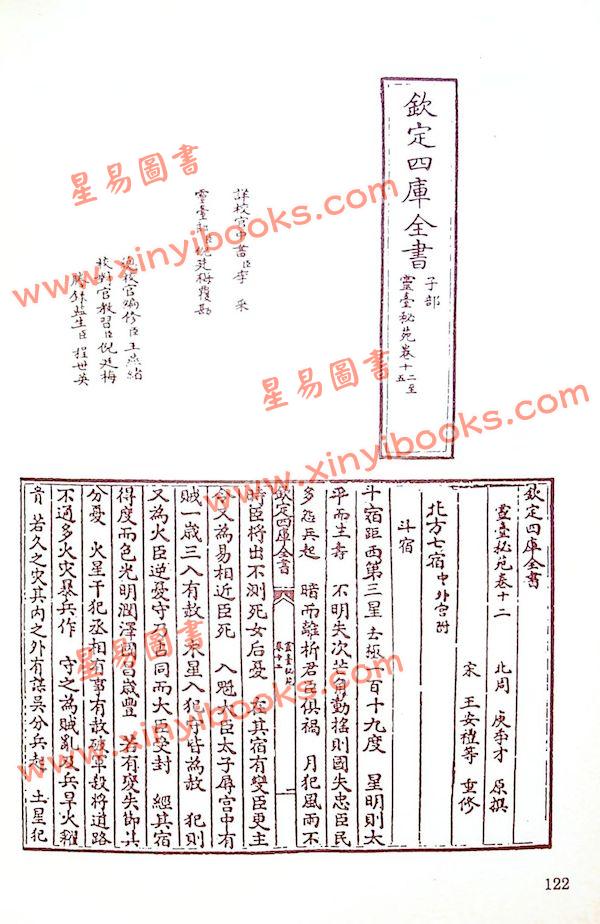 欽定四庫全書
子部
靈臺秘苑卷十二至
五
詳校官中書臣李采
靈臺郎臣倪廷梅覆勘
總校官編修臣王燕緒
校對官教習臣倪廷梅
謄錄監生臣程世英
欽定四庫全書
靈臺秘苑卷十二
北周 庾季才 原撰
宋 王安禮等 重修
北方七宿中外官附
斗宿
斗宿距西第三星去極一百十九度 星明則太
平而主壽 不明失次芒角動搖則國失忠臣民
多怨兵起 暗而離析君臣俱禍 月犯風雨不
時臣將出不測死女后憂 在其宿有變臣更主
令又為易相近臣死 入魁大臣太子辱宮中有
賊一歲三入有赦 木星入犯守皆為赦 犯則
又為火臣逆憂守乃占同而大臣受封 經其宿
得度而色光明潤澤 歲豐 若有變失節其
分憂 火星干犯丞相有事有赦破軍殺將道路
不通多火災暴兵作 守之為賊亂 兵旱火糴
貴 若久之災其內之外有謀吳分兵起 土星犯
欽定四庫全書
靈臺秘苑
卷十二
122
星易圖書
www.xinyibooks.com
星易圖書
www.xinyibooks.com
星易圖書
www.xinyibooks.com